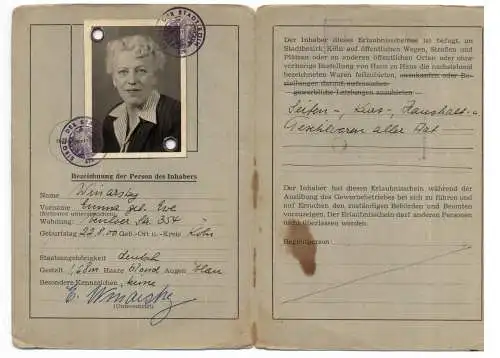 Bezeichnung der Person des Inhabers
Name Winarsky
Vorname Emma geb. Eve
Wohnung Str. 354
Geburtstag 22.8.00 Geb.-Ort u. -Kreis Köln
Staatsangehörigkeit deutsch
Gestalt 1,68m Haare blond Augen blau
Besondere Kennzeichen keine
E. Winarsky
(Unterschrift)
Der Inhaber dieses Erlaubnisscheines ist befugt, im
Stadtbezirk Köln auf öffentlichen Wegen, Straßen und
Plätzen oder an anderen öffentlichen Orten oder ohne
vorherige Bestellung von Haus zu Haus die nachstehend
bezeichneten Waren feilzubieten,
gewerbliche Leistungen anzubieten
Seifen-, Kurz-, Haushalt-
Geschirren aller Art
Der Inhaber hat diesen Erlaubnisschein während der
Ausübung des Gewerbebetriebes bei sich zu führen und
auf Ersuchen den zuständigen Behörden und Beamten
vorzuzeigen. Der Erlaubnisschein darf anderen Personen
nicht überlassen werden.
Begleitperson: